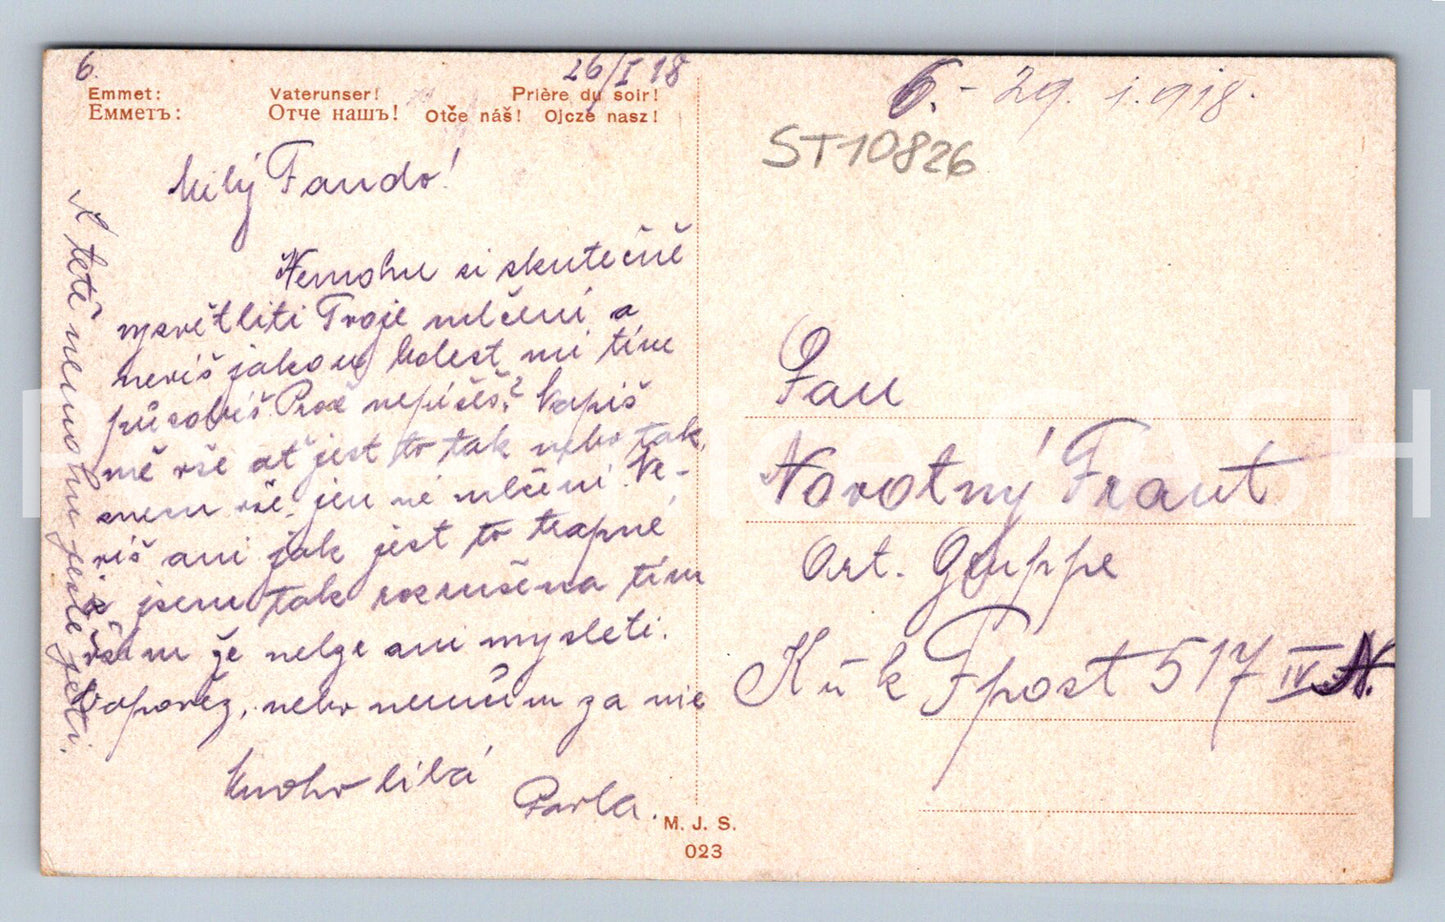 6.
26/I 18
Emmet: Vaterunser! Prière du soir!
Емметъ: Отче нашъ! Otče náš! Ojcze nasz!
Milý Fando!
Nemohu si skutečně
vysvětliti Tvoje mlčení a
nevíš jakou bolest mi tím
působíš. Proč nepíšeš? Napiš
mě vše ať jest to tak nebo tak,
snesu vše, jen né mlčení. Ne-
víš ani jak jest to trapné
a jsem tak rozrušena tím
vším že nelze ani mysleti.
Odpověz, nebo neručím za nic
Mnoho líbá
Pavla.
K tetě nemohu jeti.
M. J. S.
023
6. - 29. 1. 918.
ST10826
Pan
Novotný Frant
Art. Gruppe
K u k Fpost 517 IV. N.